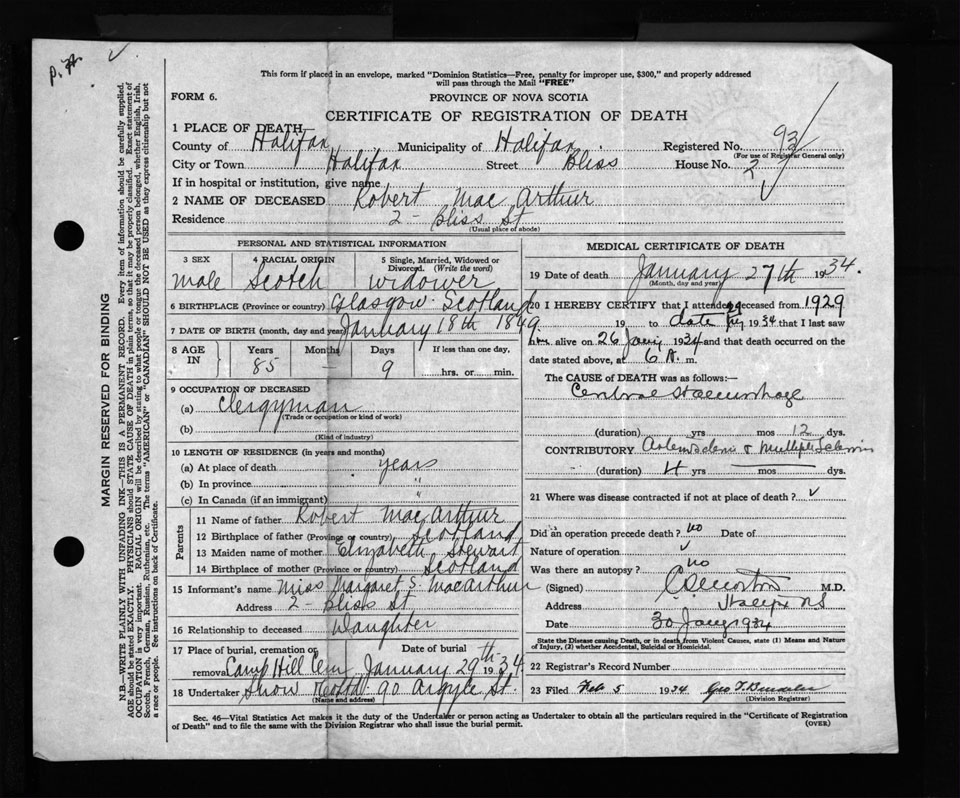 p. A.
This form if placed in an envelope, marked "Dominion Statistics—Free, penalty for improper use, $300," and properly addressed
will pass through the Mail "FREE"
FORM 6.
PROVINCE OF NOVA SCOTIA
CERTIFICATE OF REGISTRATION OF DEATH
1 PLACE OF DEATH
County of Halifax Municipality of Halifax Registered No. 93
(For use of Registrar General only)
City or Town Halifax Street Bliss House No. 2
If in hospital or institution, give name
2 NAME OF DECEASED Robert Mac Arthur
Residence 2 - Bliss St
(Usual place of abode)
PERSONAL AND STATISTICAL INFORMATION
3 SEX male
4 RACIAL ORIGIN Scotch
5 Single, Married, Widowed or
Divorced. (Write the word)
widower
6 BIRTHPLACE (Province or country) Glasgow Scotland
7 DATE OF BIRTH (month, day and year) January 18th 1849
8 AGE IN Years Months Days If less than one day,
85 — 9 hrs. or min.
9 OCCUPATION OF DECEASED
(a) Clergyman
(Trade or occupation or kind of work)
(b)
(Kind of industry)
10 LENGTH OF RESIDENCE (in years and months)
(a) At place of death years
(b) In province "
(c) In Canada (if an immigrant) "
Parents
11 Name of father Robert MacArthur
12 Birthplace of father (Province or country) Scotland
13 Maiden name of mother Elizabeth Stewart
14 Birthplace of mother (Province or country) Scotland
15 Informant's name Miss Margaret S. MacArthur
Address 2 - Bliss St
16 Relationship to deceased Daughter
17 Place of burial, cremation or Date of burial
removal Camp Hill Cem January 29th 1934
18 Undertaker Snow 90 Argyle St.
(Name and address)
MEDICAL CERTIFICATE OF DEATH
19 Date of death January 27th 1934.
(Month, day and year)
20 I HEREBY CERTIFY that I attended deceased from 1929
19 to date 1934 that I last saw
him alive on 26 Jany 1934 and that death occurred on the
date stated above, at 6 A. m.
The CAUSE of DEATH was as follows:—
Cerebral Haemorrhage
(duration) yrs mos 12 dys.
CONTRIBUTORY & Multiple
(duration) 4 yrs — mos — dys.
21 Where was disease contracted if not at place of death?
Did an operation precede death? no Date of
Nature of operation
Was there an autopsy? no
(Signed) M.D.
Address Halifax NS
Date 30 Jany 1934
State the Disease causing Death, or in death from Violent Causes, state (1) Means and Nature
of Injury, (2) whether Accidental, Suicidal or Homicidal.
22 Registrar's Record Number
23 Filed Feb 5 1934 Geo T.
(Division Registrar)
Sec. 46—Vital Statistics Act makes it the duty of the Undertaker or person acting as Undertaker to obtain all the particulars required in the "Certificate of Registration
of Death" and to file the same with the Division Registrar who shall issue the burial permit.
(OVER)
MARGIN RESERVED FOR BINDING
N.B.—WRITE PLAINLY WITH UNFADING INK—THIS IS A PERMANENT RECORD. Every item of information should be carefully supplied.
AGE should be stated EXACTLY. PHYSICIANS should STATE CAUSE OF DEATH in plain terms, so that it may be properly classified. Exact statement of
OCCUPATION is very important. RACIAL ORIGIN will be described by stating to what people or tongue the deceased person belonged, whether English, Irish,
Scotch, French, German, Russian, Ruthenian, etc. The terms "AMERICAN" or "CANADIAN" SHOULD NOT BE USED as they express citizenship but not
a race or people. See instructions on back of Certificate.